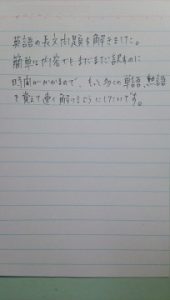 英語の長文問題を解きました。
簡単なやつ筈でもまだまだ訳すのに
時間がかかるので、もっと多くの単語、熟語
を覚えて速く解けるようにしたいです。